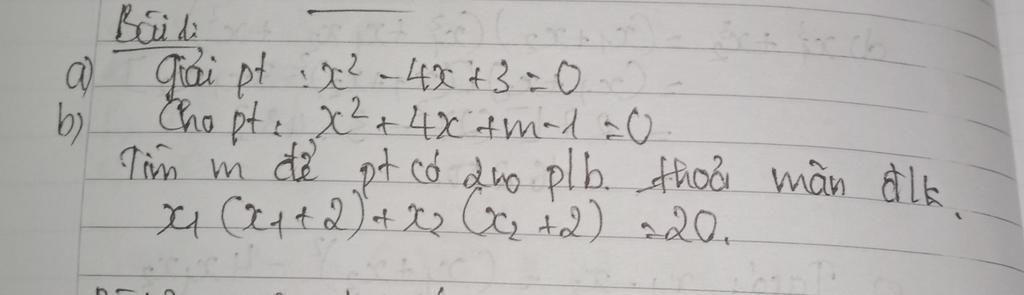 Bài 1:
a) Giải pt : x² - 4x + 3 = 0
b) Cho pt : x² + 4x + m - 1 = 0
Tìm m để pt có 2 no plb. thoả mãn đlk.
x₁ (x₁ + 2) + x₂ (x₂ + 2) = 20.